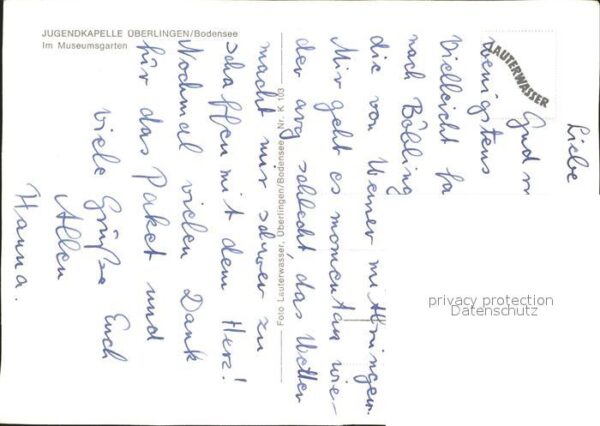 JUGENDKAPELLE ÜBERLINGEN/Bodensee
Im Museumsgarten
LAUTERWASSER
Foto Lauterwasser, Überlingen/Bodensee Nr. K 103
Liebe
Gud
wenigstens
Vielleicht fa
nach Böbling
die von Werner mitbringen.
Mir geht es momentan wie-
der arg schlecht, das Wetter
macht mir schwer zu
schaffen mit dem Herz!
Nochmal vielen Dank
für das Paket und
viele Grüße Euch
Allen
Hanna.
privacy protection
Datenschutz